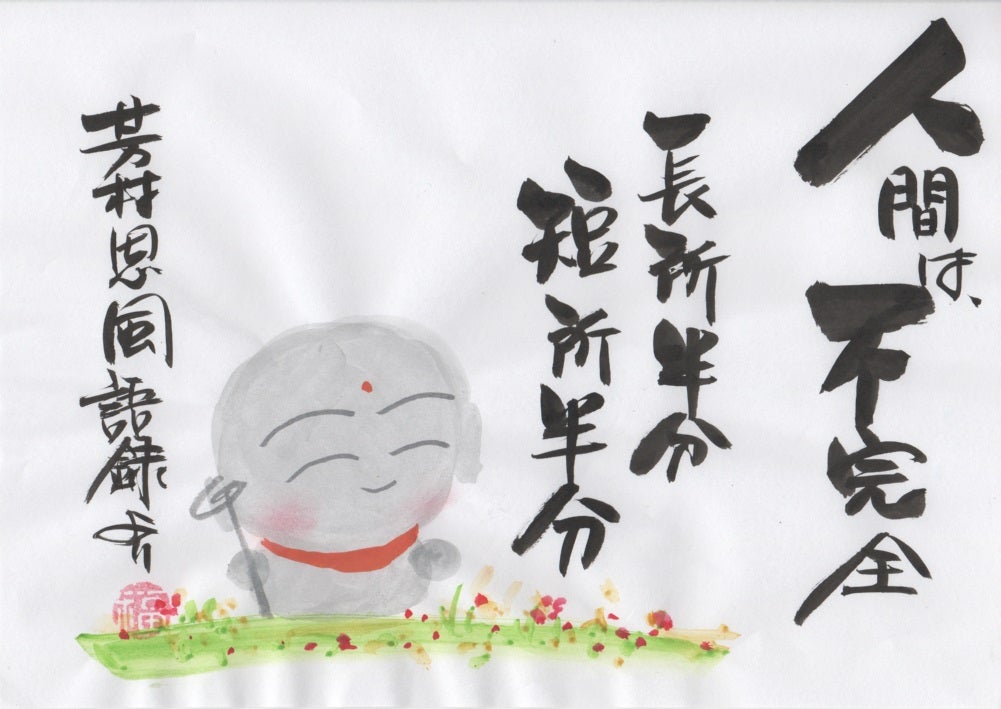 人間は、不完全
長所半分
短所半分
芳村思風語録より